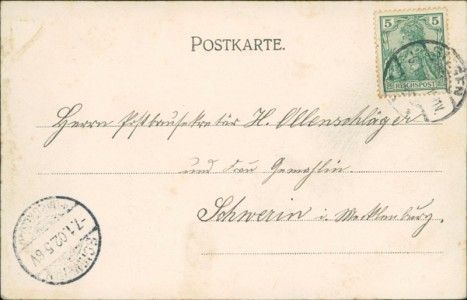 POSTKARTE.
5 5
REICHSPOST
Herrn Postbausekretär H. Ollenschläger
und Frau Gemahlin.
Schwerin i. Mecklenburg.
-7.1.02.5-6V